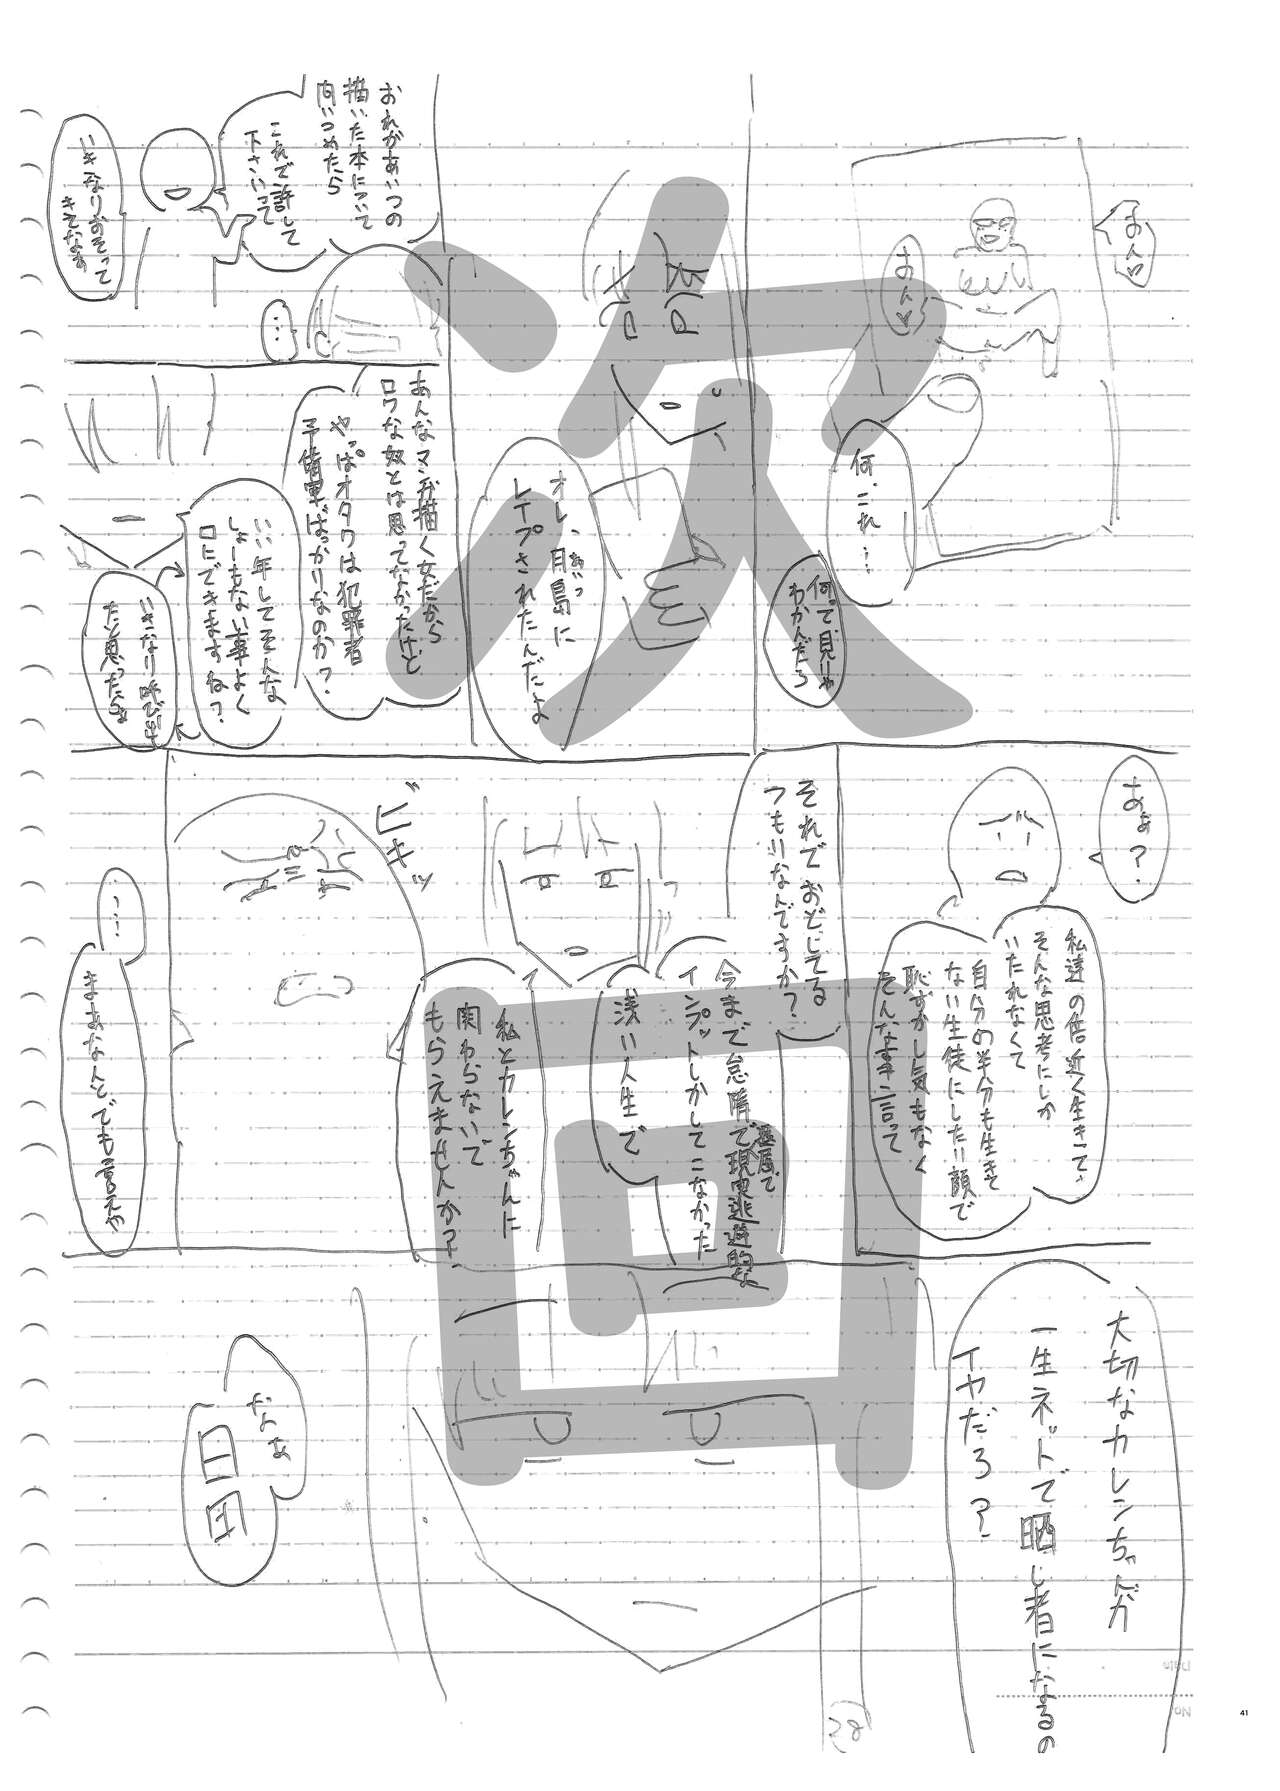 あん♡
あん♡
何、これ…
何って見りゃ
わかんだろ
オレ、月島に
レイプされたんだよ
おれがあいつの
描いた本について
問いつめたら
これで許して
下さいって
いきなりおそって
きてなぁ
…
あんなマンガ描く女だから
ロクな奴とは思ってなかったけど
やっぱオタクは犯罪者
予備軍ばっかりなのか?
いい年してそんな
しょーもない事よく
口にできますね?
いきなり呼び出し
たと思ったらぁ
あぁ?
私達の倍近く生きて、
そんな思考にしか
いたれなくて
自分の半分も生きて
ない生徒にしたり顔で
恥ずかし気もなく
そんな事言って
それでおどしてる
つもりなんですか?
今まで怠惰で現実逃避的な
インプットしかしてこなかった
浅い人生で
私とカレンちゃんに
関わらないで
もらえませんか?
ビキッ
…
まあなんとでも言えや
大切なカレンちゃんが
一生ネットで晒し者になるの
イヤだろ?
なんあ
次回
38
Date
No
41